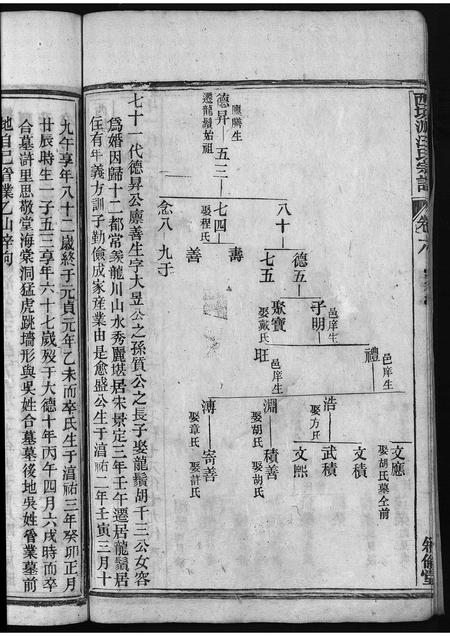 西□派汪氏宗譜
卷六
廩膳生
德昇
遷龍鬚始祖
五三
八十
七四
娶程氏
念八
九于
德五
七五
壽
善
子明
邑庠生
聚寶
娶戴氏
旺
禮
邑庠生
邑庠生
浩
娶方氏
淵
娶胡氏
溥
娶章氏
文應
娶胡氏墓仝前
文積
武積
文熙
積善
娶胡氏
寄善
娶許氏
七十一代德昇公廩善生字大昱公之孫質公之長子娶龍鬚胡千三公女容
爲婚因歸十二都常羨龍川山水秀麗堪居宋景定三年壬午遷居龍鬚居
住有年義方訓子勤儉成家産業由是愈盛公生于湻祐二年壬寅三月十
九午享年八十二歲終于元貞元年乙未而卒氏生于湻祐三年癸卯正月
廿辰時生一子五三享年六十七歲歿于大德十年丙午四月六戌時而卒
合墓滸里思敬堂海棠洞猛虎跳墻形與吳姓合墓墓後地吳姓管業墓前
地自己管業乙山辛向